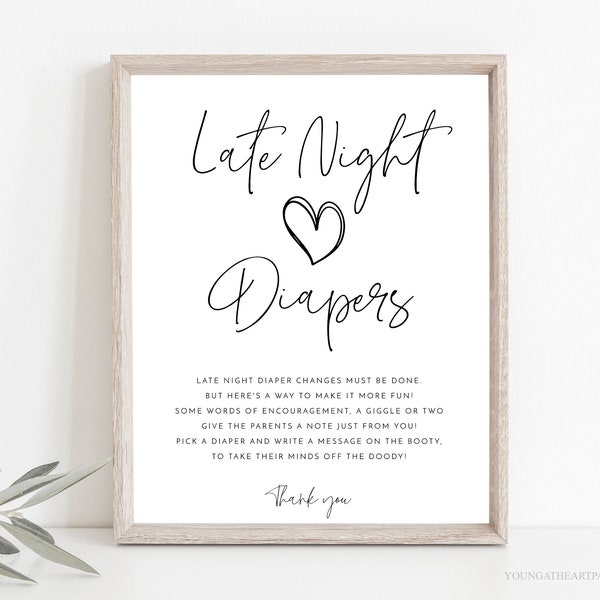 Late Night
Diapers
LATE NIGHT DIAPER CHANGES MUST BE DONE.
BUT HERE'S A WAY TO MAKE IT MORE FUN!
SOME WORDS OF ENCOURAGEMENT, A GIGGLE OR TWO
GIVE THE PARENTS A NOTE JUST FROM YOU!
PICK A DIAPER AND WRITE A MESSAGE ON THE BOOTY,
TO TAKE THEIR MINDS OFF THE DOODY!
Thank you
YOUNGATHEARTPA